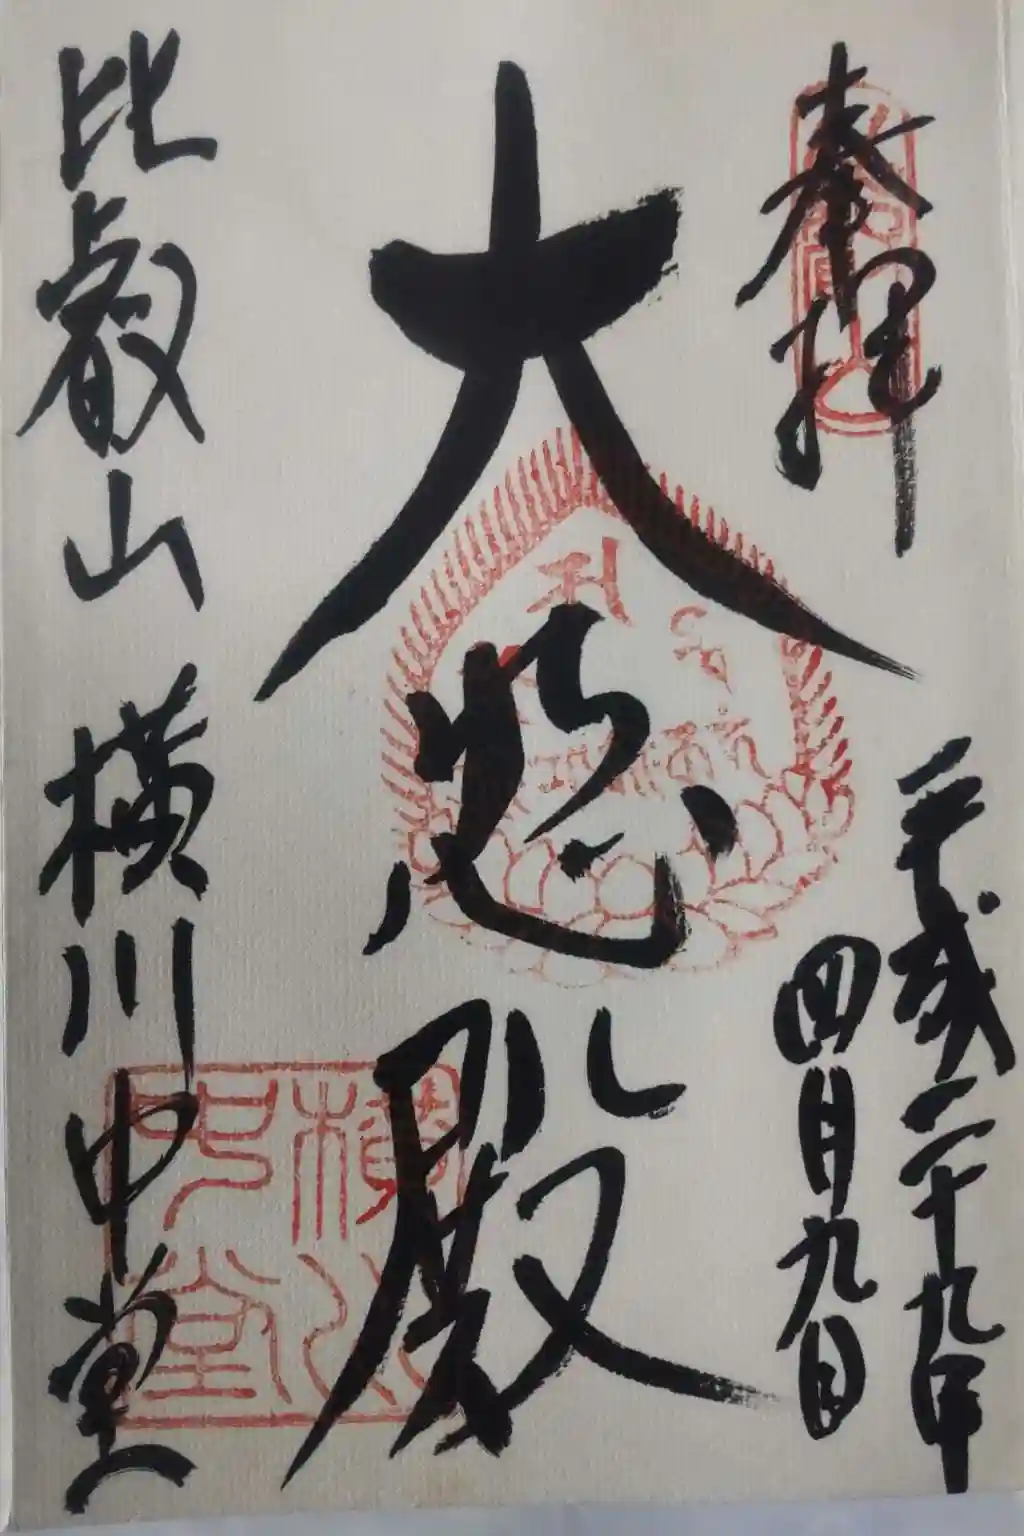 奉拝
平成二十九年
四月九日
大悲殿
比叡山横川中堂
横川
中堂